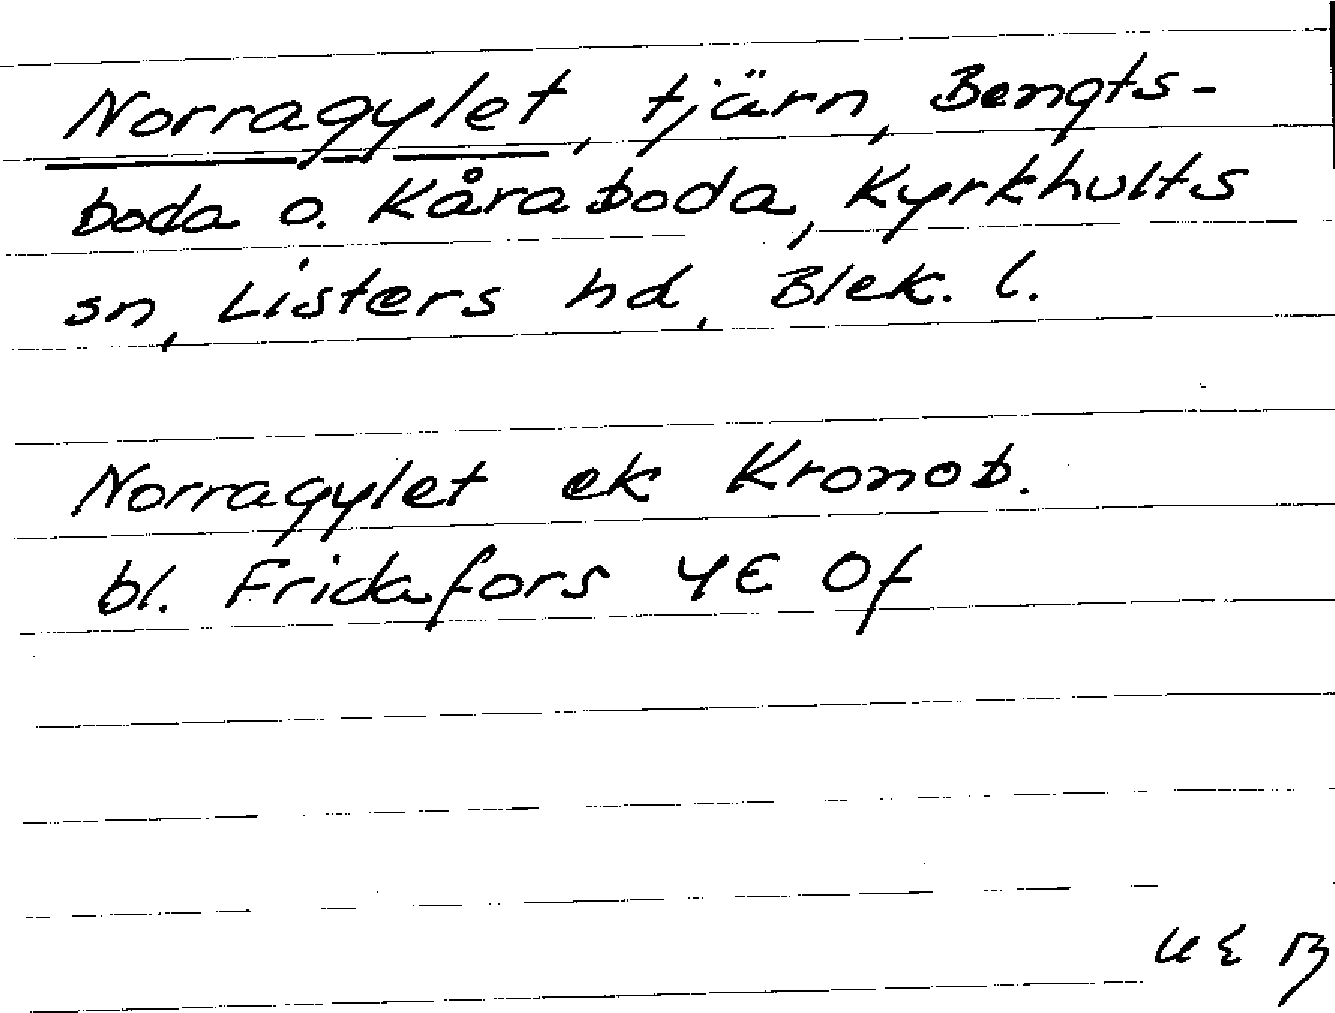 Norragylet, tjärn, Bengts-
boda o. Kåraboda, Kyrkhults
sn, Listers hd, Blek. l.
Norragylet ek Kronob.
bl. Fridafors 4E 0f